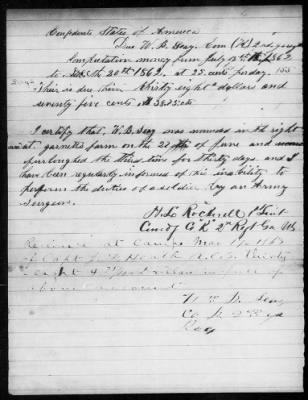 Confederate States of America
Due W. B. Seay, Com (K) 2nd Ga regt
Commutation money from July 12th 1862
to 20th 1862, at 25 cents per day, 155
There is due him thirty eight dollars and
seventy five cents $38.75 cts
I certify that W. B. Seay was wounded in the right
at garnetts farm on the 27th of June and
furloughed the third time for thirty days and I
have been regularly informed of his inability to
perform the duties of a soldier by an Army
Surgeon.
H. L. Rockwell 1st Lieut
Comdg Co K 2nd Regt Ga Vols
Received at Camp Mar 1863
of Capt Heath A. Q. M. thirty
eight dollars in full of
above account
W. B. Seay
Co K 2nd Ga
Reg